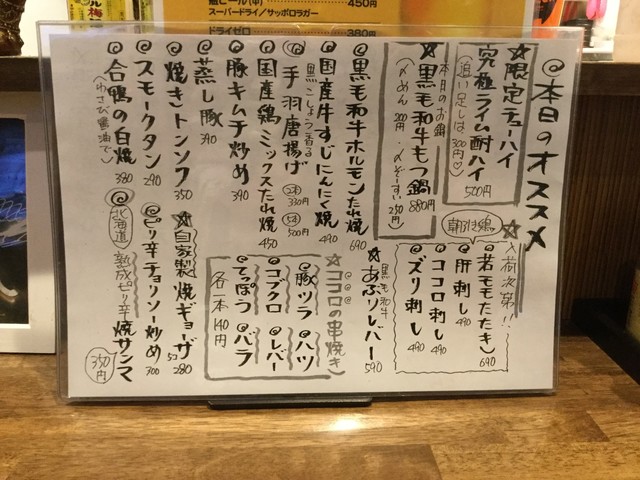 450円
スーパードライ/サッポロラガー
ドライゼロ 380円
本日のオススメ
☆限定チューハイ
究極ライム酎ハイ
(追い足しは300円♡)
500円
本日のお鍋
☆黒毛和牛もつ鍋 880円
(〆めん 200円・〆ぞーすい 250円)
黒毛和牛ホルモンたれ焼 690
国産牛すじにんにく焼 490
黒こしょう香る
手羽唐揚げ (2本)330円 (5本)500円
国産鶏ミックスたれ焼 450
豚キムチ炒め 390
蒸し豚 390
焼きトンソク 350
スモークタン 290
合鴨の白焼 380
(わさび醤油で)
☆入荷次第!!
朝引き鶏
若モモたたき 690
肝刺し 490
ココロ刺し 490
ズリ刺し 490
黒毛和牛
☆あぶりレバー 590
☆ココロの串焼き
豚ヅラ ハツ
コブクロ レバー
てっぽう バラ
各一本140円
☆自家製焼ギョーザ 5コ 280
ピリ辛チョリソー炒め 300
北海道 熟成ピリ辛焼サンマ 350円